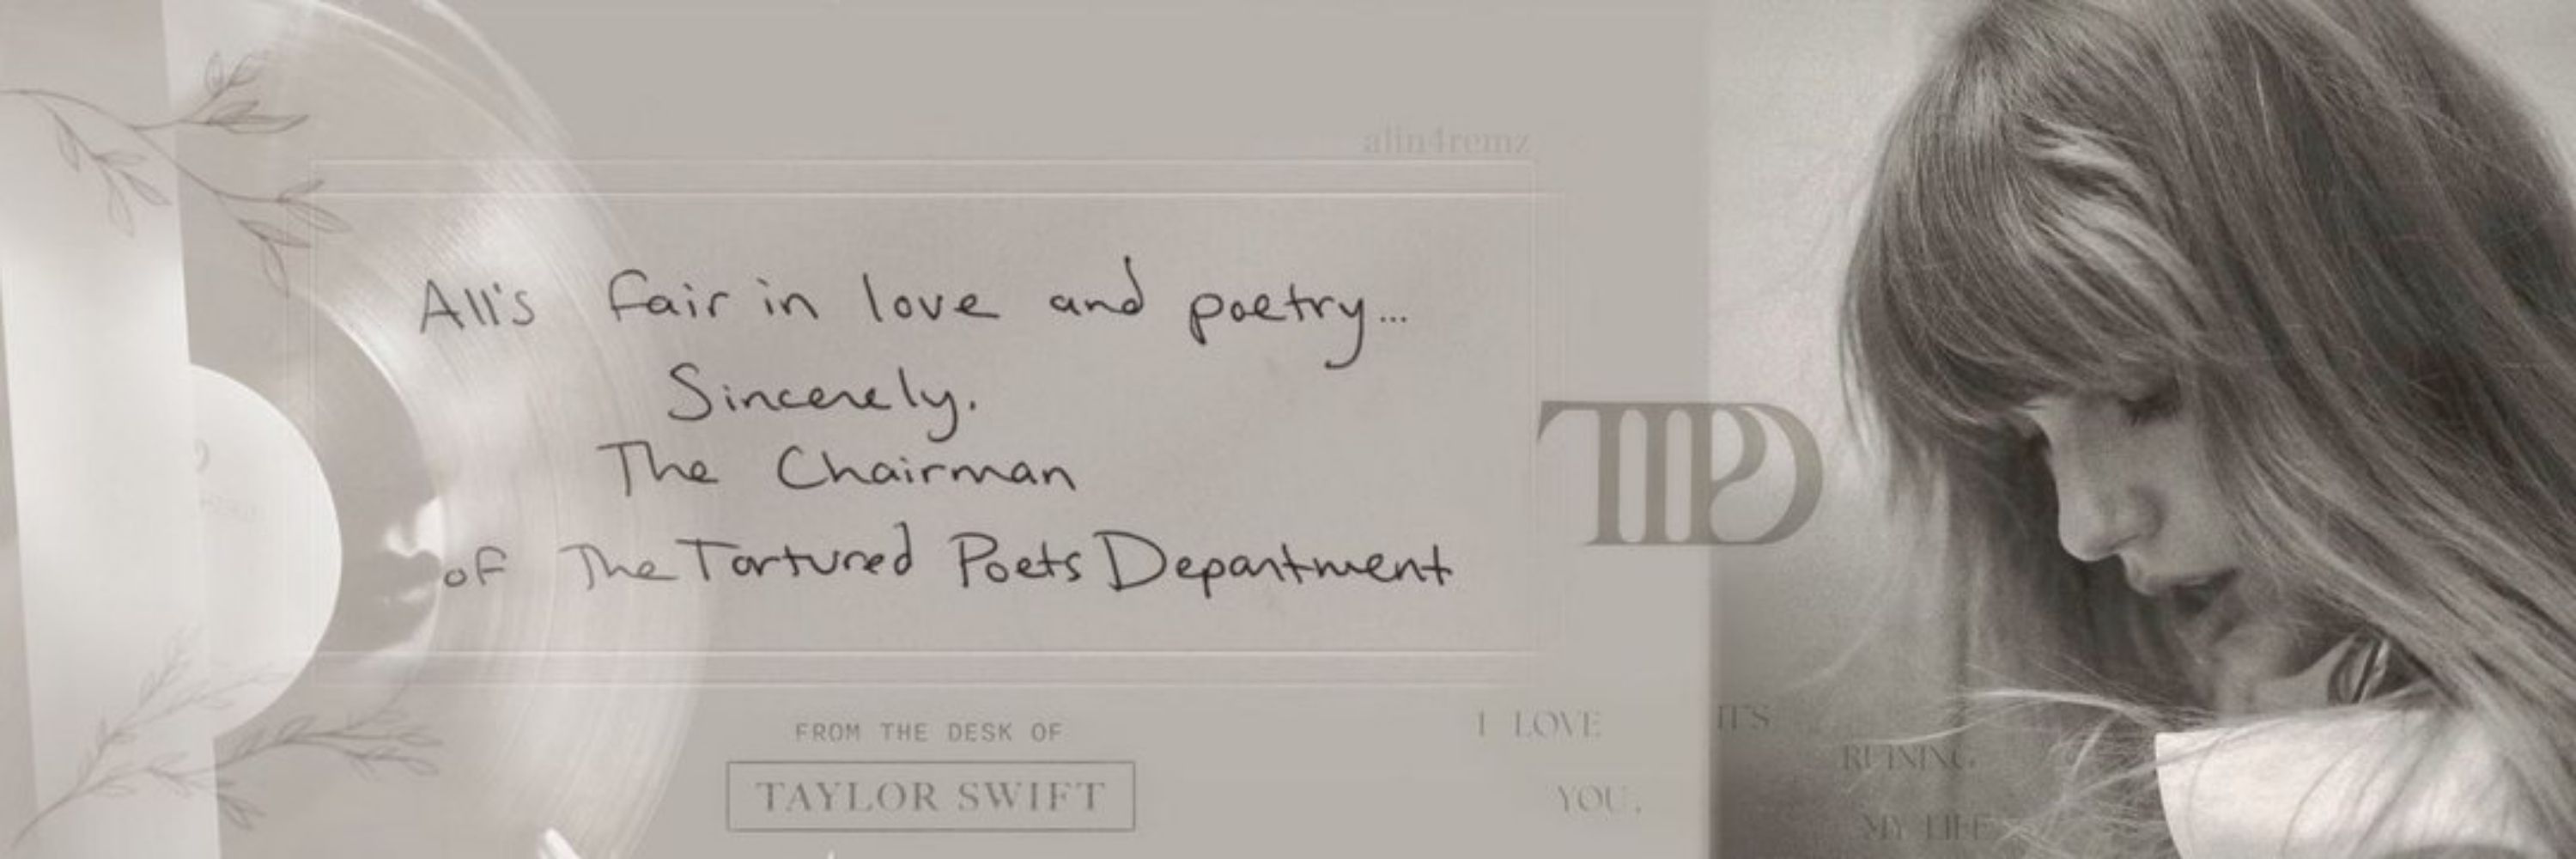 alin4remz
All's fair in love and poetry...
Sincerely.
The Chairman
of The Tortured Poets Department
TTPD
FROM THE DESK OF
TAYLOR SWIFT
I LOVE
YOU.
IT'S
RUINING
MY LIFE